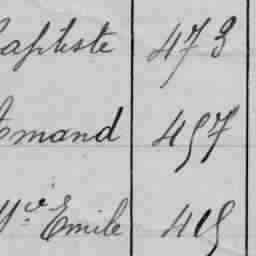 Baptiste 473
Amand 457
Mce Emile 415